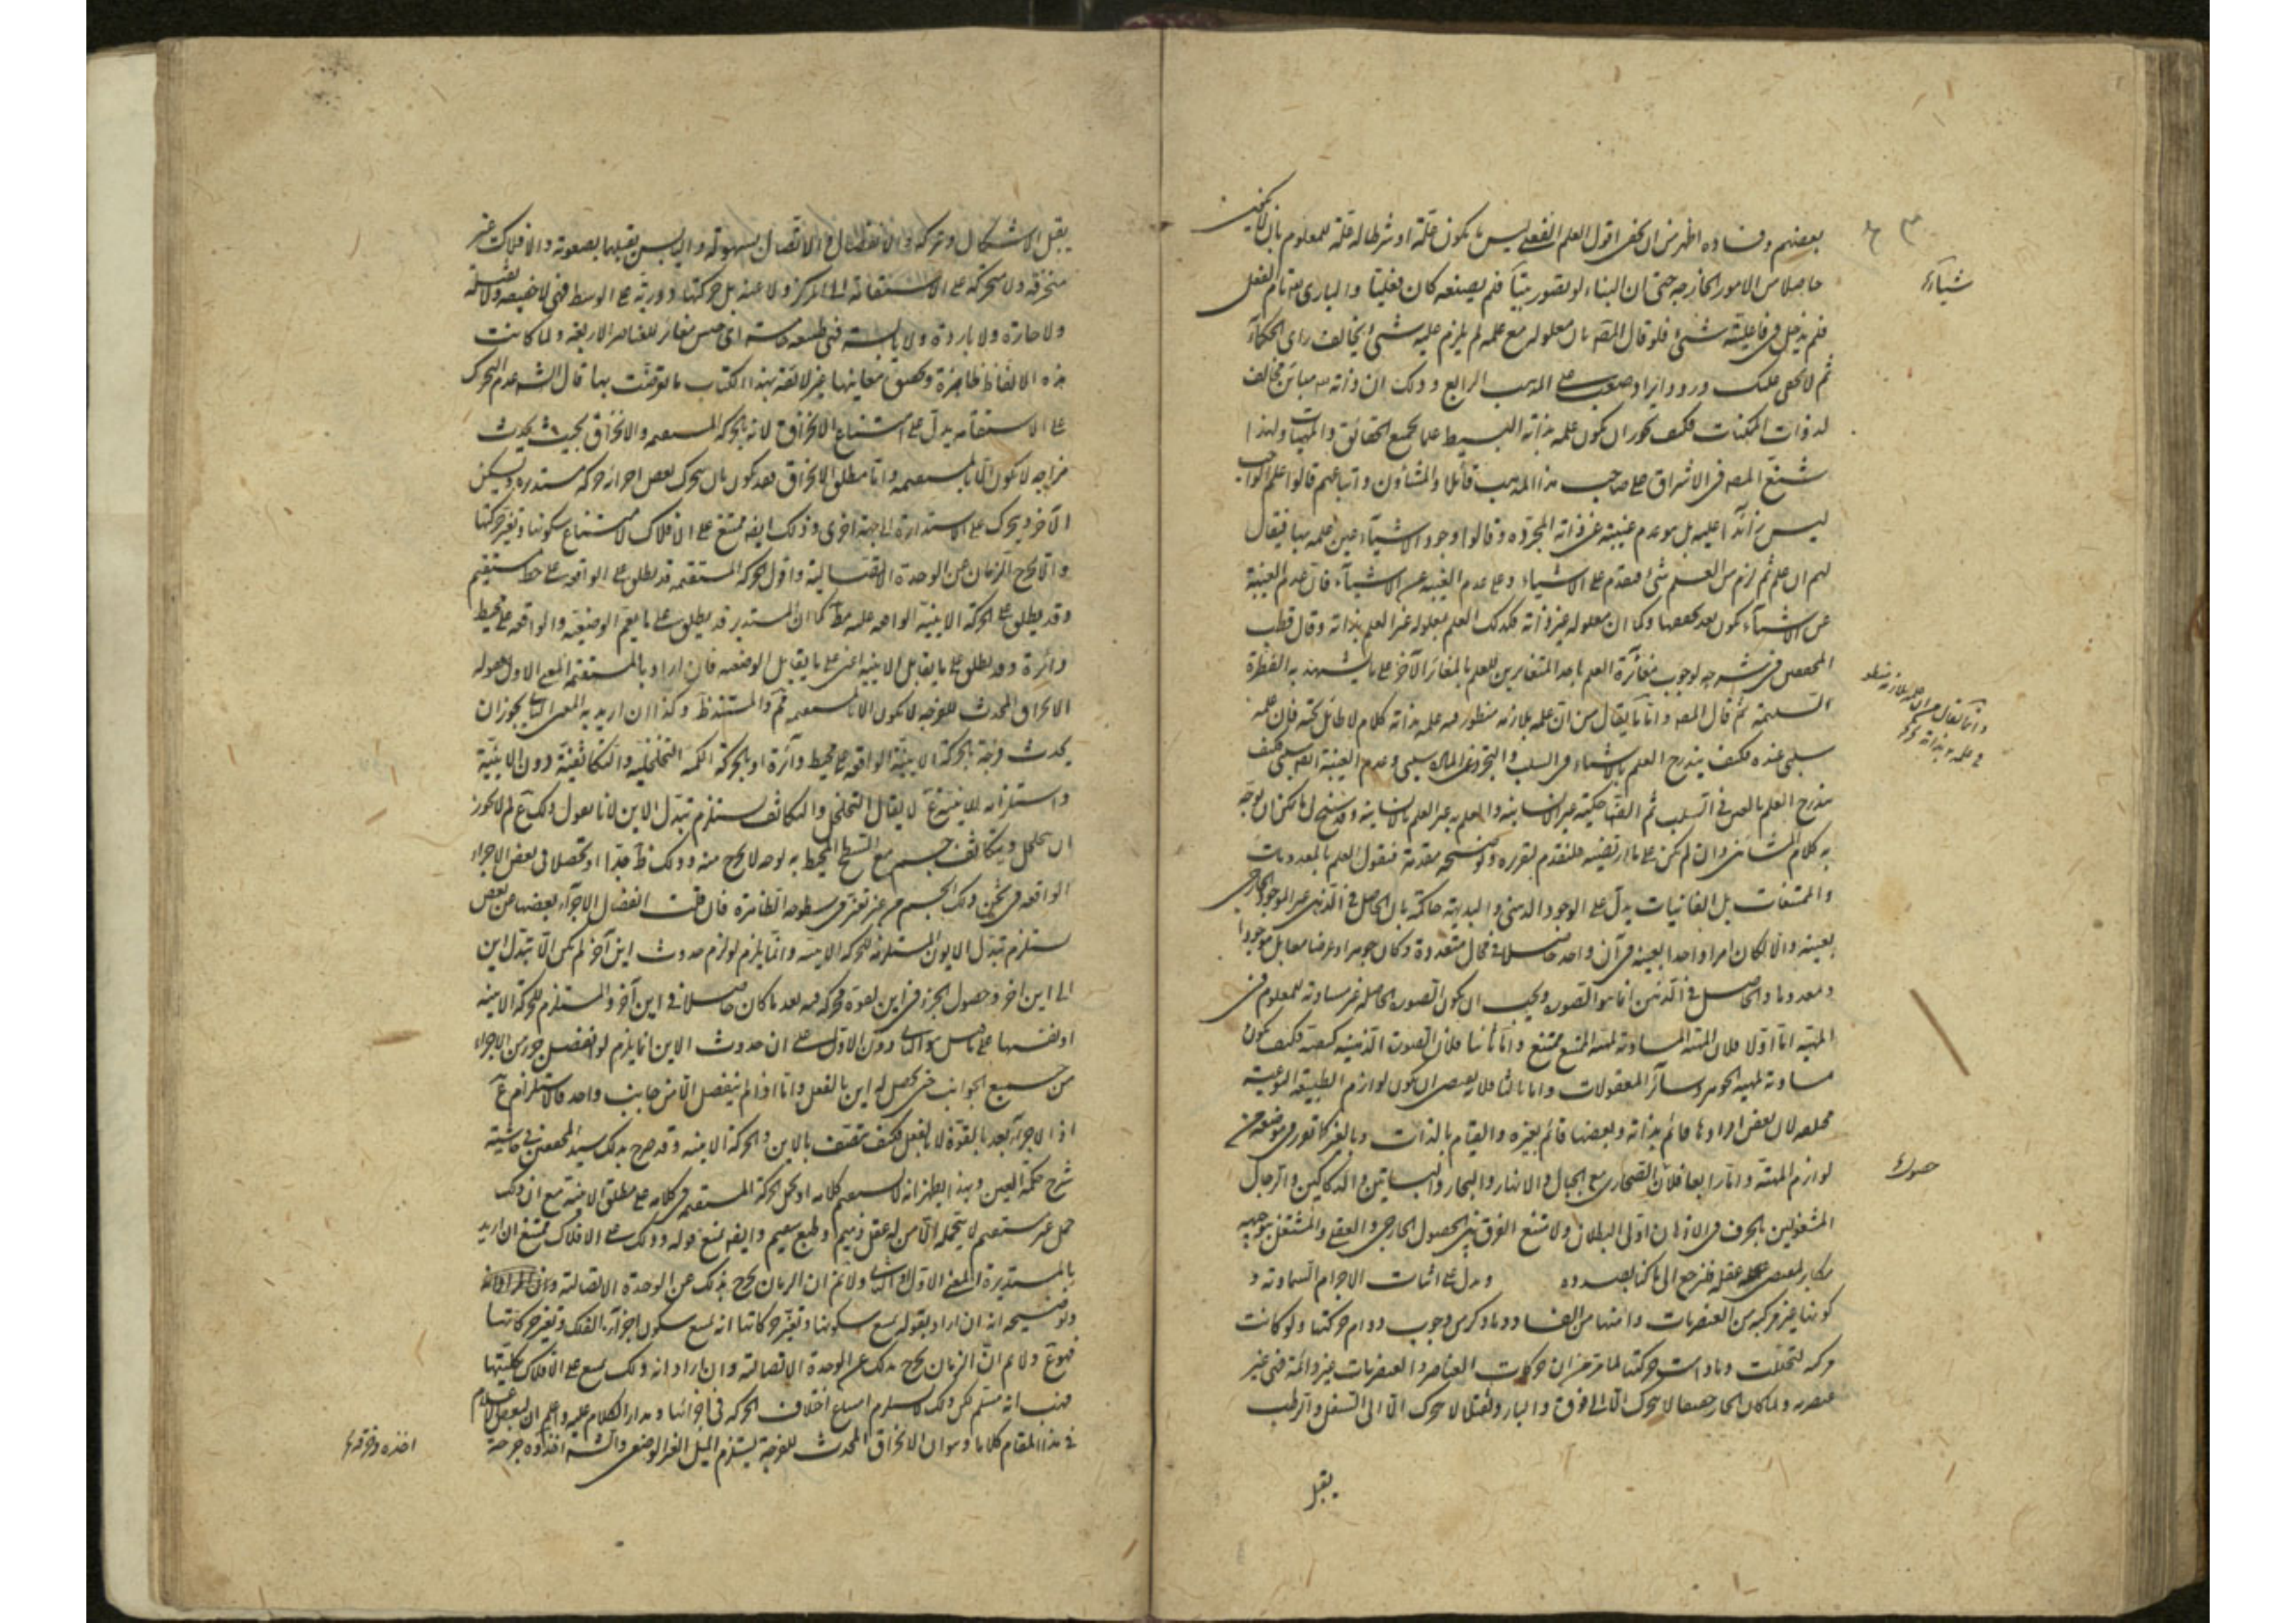 بعضهم وفساده اظهر من ان يخفى اقول العلم الفعلى ليس ما يكون علة او شرطا له علة للمعلوم بان لا يكون
حاصلا من الامور الخارجه حتى ان البناء لو تصور بيتا فلم يصنعه كان فعليا والبارى تام الفعل
فلم يدخل فى فاعليته شئ فلو قال المص بان معلوله مع علمه لم يلزم عليه شئ يخالف راى الحكماء
ثم لا يخفى عليك ورود ايراد صعب على المذهب الرابع وذلك ان ذاته مباين مخالف
لذوات الممكنات فكيف يجوز ان يكون علمه بذاته البسيط علما بجميع الحقائق والمهيات ولهذا
شنع المص فى الاشراق على صاحب هذا المذهب قائلا والمشاؤن واتباعهم قالوا علم الواجب
ليس زائدا عليه بل هو عدم غيبته عن ذاته المجردة وقالوا وجود الاشياء عين علمه بها فيقال
لهم ان علم ثم لزم من العلم شئ فيقدم على الاشياء وعلى عدم الغيبة عن الاشياء فان عدم الغيبة
عن الاشياء يكون بعد تحققها وكما ان معلوله غير ذاته فكذلك العلم بمعلوله غير العلم بذاته وقال قطب
المحققين فى شرحه لوجوب مغائرة العلم باحد المتغايرين للعلم بالمغائر الآخر على ما يشهد به الفطرة
السليمة ثم قال المص واما ما يقال من ان علمه بلازمه منطو فى علمه بذاته كلام لا طائل تحته فان علمه
سلبى عنده فكيف يندرج العلم بالاشياء فى السلب والتجرد عن المادة سلبى وعدم الغيبة ايضا سلبى فكيف
يندرج العلم بالغير فى السلب ثم الضاحكية غير الانسانية والعلم بها غير العلم بالانسانية وقد سنح لى ما يمكن ان يوجه
به كلام المشائين وان لم يكن على ما ارتضيه فلنقدم لتقريره وتوضيحه مقدمة فنقول العلم بالمعدومات
والممتنعات بل الفانيات يدل على الوجود الذهنى والبديهة حاكمة بان الحاصل فى الذهن غير الموجود الخارجى
بعينه والا لكان امرا واحدا بعينه فى آن واحد حاصلا فى محال متعددة وكان جوهرا وعرضا معا بل موجودا
ومعدوما والحاصل فى الذهن انما هو الصورة ويجب ان يكون الصورة الحاصلة غير مساوية للمعلوم فى
المهية اما اولا فلان المهية المساوية لمهية الممتنع ممتنع واما ثانيا فلان الصورة الذهنية كيفية فكيف يكون
مساوية لمهية الجوهر وسائر المعقولات واما ثالثا فلانه يقتضى ان يكون لوازم الطبيعة النوعية
مختلفة لان بعض افرادها قائم بذاته وبعضها قائم بغيره والقيام بالذات وبالغير كما تقرر فى موضعه من
لوازم المهية واما رابعا فلان الصحارى مع الجبال والانهار والبحار والبساتين والدكاكين والرجال
المشغولين بالحرف فى الاذهان اولى البطلان ولا ينفع الفرق بين الحصول الخارجى والعقلى والمشتغل بتوجيه
مكابر لمقتضى عقله فلنرجع الى ما كنا بصدده ويدل على اثبات الاجرام السماوية و
كونها غير مركبة من العنصريات وامنها من الفساد وما ذكر من وجوب دوام حركتها ولو كانت
مركبة لتحللت وما دامت حركتها لما مر من ان حركات العناصر والعنصريات غير دائمة فهى غير
عنصرية ولما كان الحار خفيفا لا يتحرك الا الى فوق والبارد ثقيلا لا يتحرك الا الى السفل والرطب
يقبل
شياءء
يقبل الاشكال وتركه والانفصال والاتصال بسهولة واليابس يقبلها بصعوبة والافلاك غير
منخرقة ولا متحركة على الاستقامة الى المركز ولا عنه بل حركتها دورية على الوسط فهى لا خفيفة ولا ثقيلة
ولا حارة ولا باردة ولا يابسة فهى طبيعة خامسة اى جنس مغائر للعناصر الاربعة ولما كانت
هذه الالفاظ ظاهرة وتحقيق معانيها غير لائقة بهذا الكتاب ما توقفت بها قال الش عدم التحرك
على الاستقامة يدل على امتناع الانخراق لانه بالحركة المستقيمة والانخراق بحيث يحدث
فرجه لا يكون الا بالمستقيمة واما مطلق الانخراق فقد يكون بان يتحرك بعض اجزائه حركة مستديرة ويسكن
الآخر ويتحرك على الاستدارة الى جهة اخرى وذلك ايضا ممتنع على الافلاك لامتناع سكونها وتغير حركتها
والا لخرج الزمان عن الوحدة الاتصالية واقول الحركة المستقيمة قد يطلق على الواقعة على خط مستقيم
وقد يطلق على الحركة الاينية الواقعة عليه مط كما ان المستدير قد يطلق على ما يعم الوضعية والواقعة على محيط
دائرة وقد يطلق على ما يقابل الاينية اعنى على ما يقابل الوضعية فان اراد بالمستقيمة المعنى الاول فقوله
الانخراق المحدث للفرجة لا يكون الا بالمستقيمة ثم والمستند ظ وكذا ان اريد به المعنى الثانى يجوز ان
يحدث فرجة بالحركة الاينية الواقعة على محيط دائرة او بالحركة الكمية التخلخلية والتكاثفية دون الاينية
واستلزامه للاينية ع لا يقال التخلخل والتكاثف يستلزم تبدل الاين لانا نقول ذلك ع لم لا يجوز
ان يتخلخل ويتكاثف جسم مع السطح المحيط به بوجه لا يخرج منه وذلك ظ جدا او تحصلا فى بعض الاجزاء
الواقعة فى ثخن ذلك الجسم من غير تغير فى سطوحه الظاهرة فان قلت انفصال الاجزاء بعضها عن بعض
يستلزم تبدل الايون المستلزم للحركة الاينية وانما يلزم لو لزم حدوث اين آخر لم يكن الا تبدل اين
الى اين آخر وحصول الجزء فى اين بعده بحركة فيه بعد ما كان حاصلا فى اين آخر والمستلزم للحركة الاينية
او نفسها على ما قيل هو الثانى دون الاول على ان حدوث الاين انما يلزم لو انفصل جزء من الاجزاء
من جميع الجوانب حتى يحصل له اين بالفعل واما اذا لم ينفصل الا من جانب واحد فالاستلزام ع
اذ الاجزاء بعد بالقوة لا بالفعل فكيف يتصف بالاين والحركة الاينية وقد صرح بذلك سيد المحققين فى حاشية
شرح حكمة العين وبهذا يظهر انه لا يستقيم كلامه او تحمل الحركة المستقيمة فى كلامه على مطلق الاينية مع ان ذلك
حمل غير مستقيم لا يتحمله الا من له عقل ذميم وطبع سقيم وايضا نمنع قوله وذلك على الافلاك ممتنع ان اريد
بالمستديرة المعنى الاول او الثانى ولا نم ان الزمان يخرج بذلك عن الوحدة الاتصالية
وتوضيحه انه ان اراد بقوله يمتنع سكونها وتغير حركاتها انه يمتنع سكون اجزاء الفلك وتغير حركاتها
فهو ع ولا نم ان الزمان يخرج بذلك عن الوحدة الاتصالية وان اراد انه ذلك يمتنع على الافلاك بكليتها
فهب انه مسلم لكن ذلك لا يستلزم امتناع اختلاف الحركة فى اجزائها ومدار الكلام عليه واعلم ان لبعض الاعلام
فى هذا المقام كلاما وهو ان الانخراق المحدث للفرجة يستلزم الميل الغير الوضعى والش